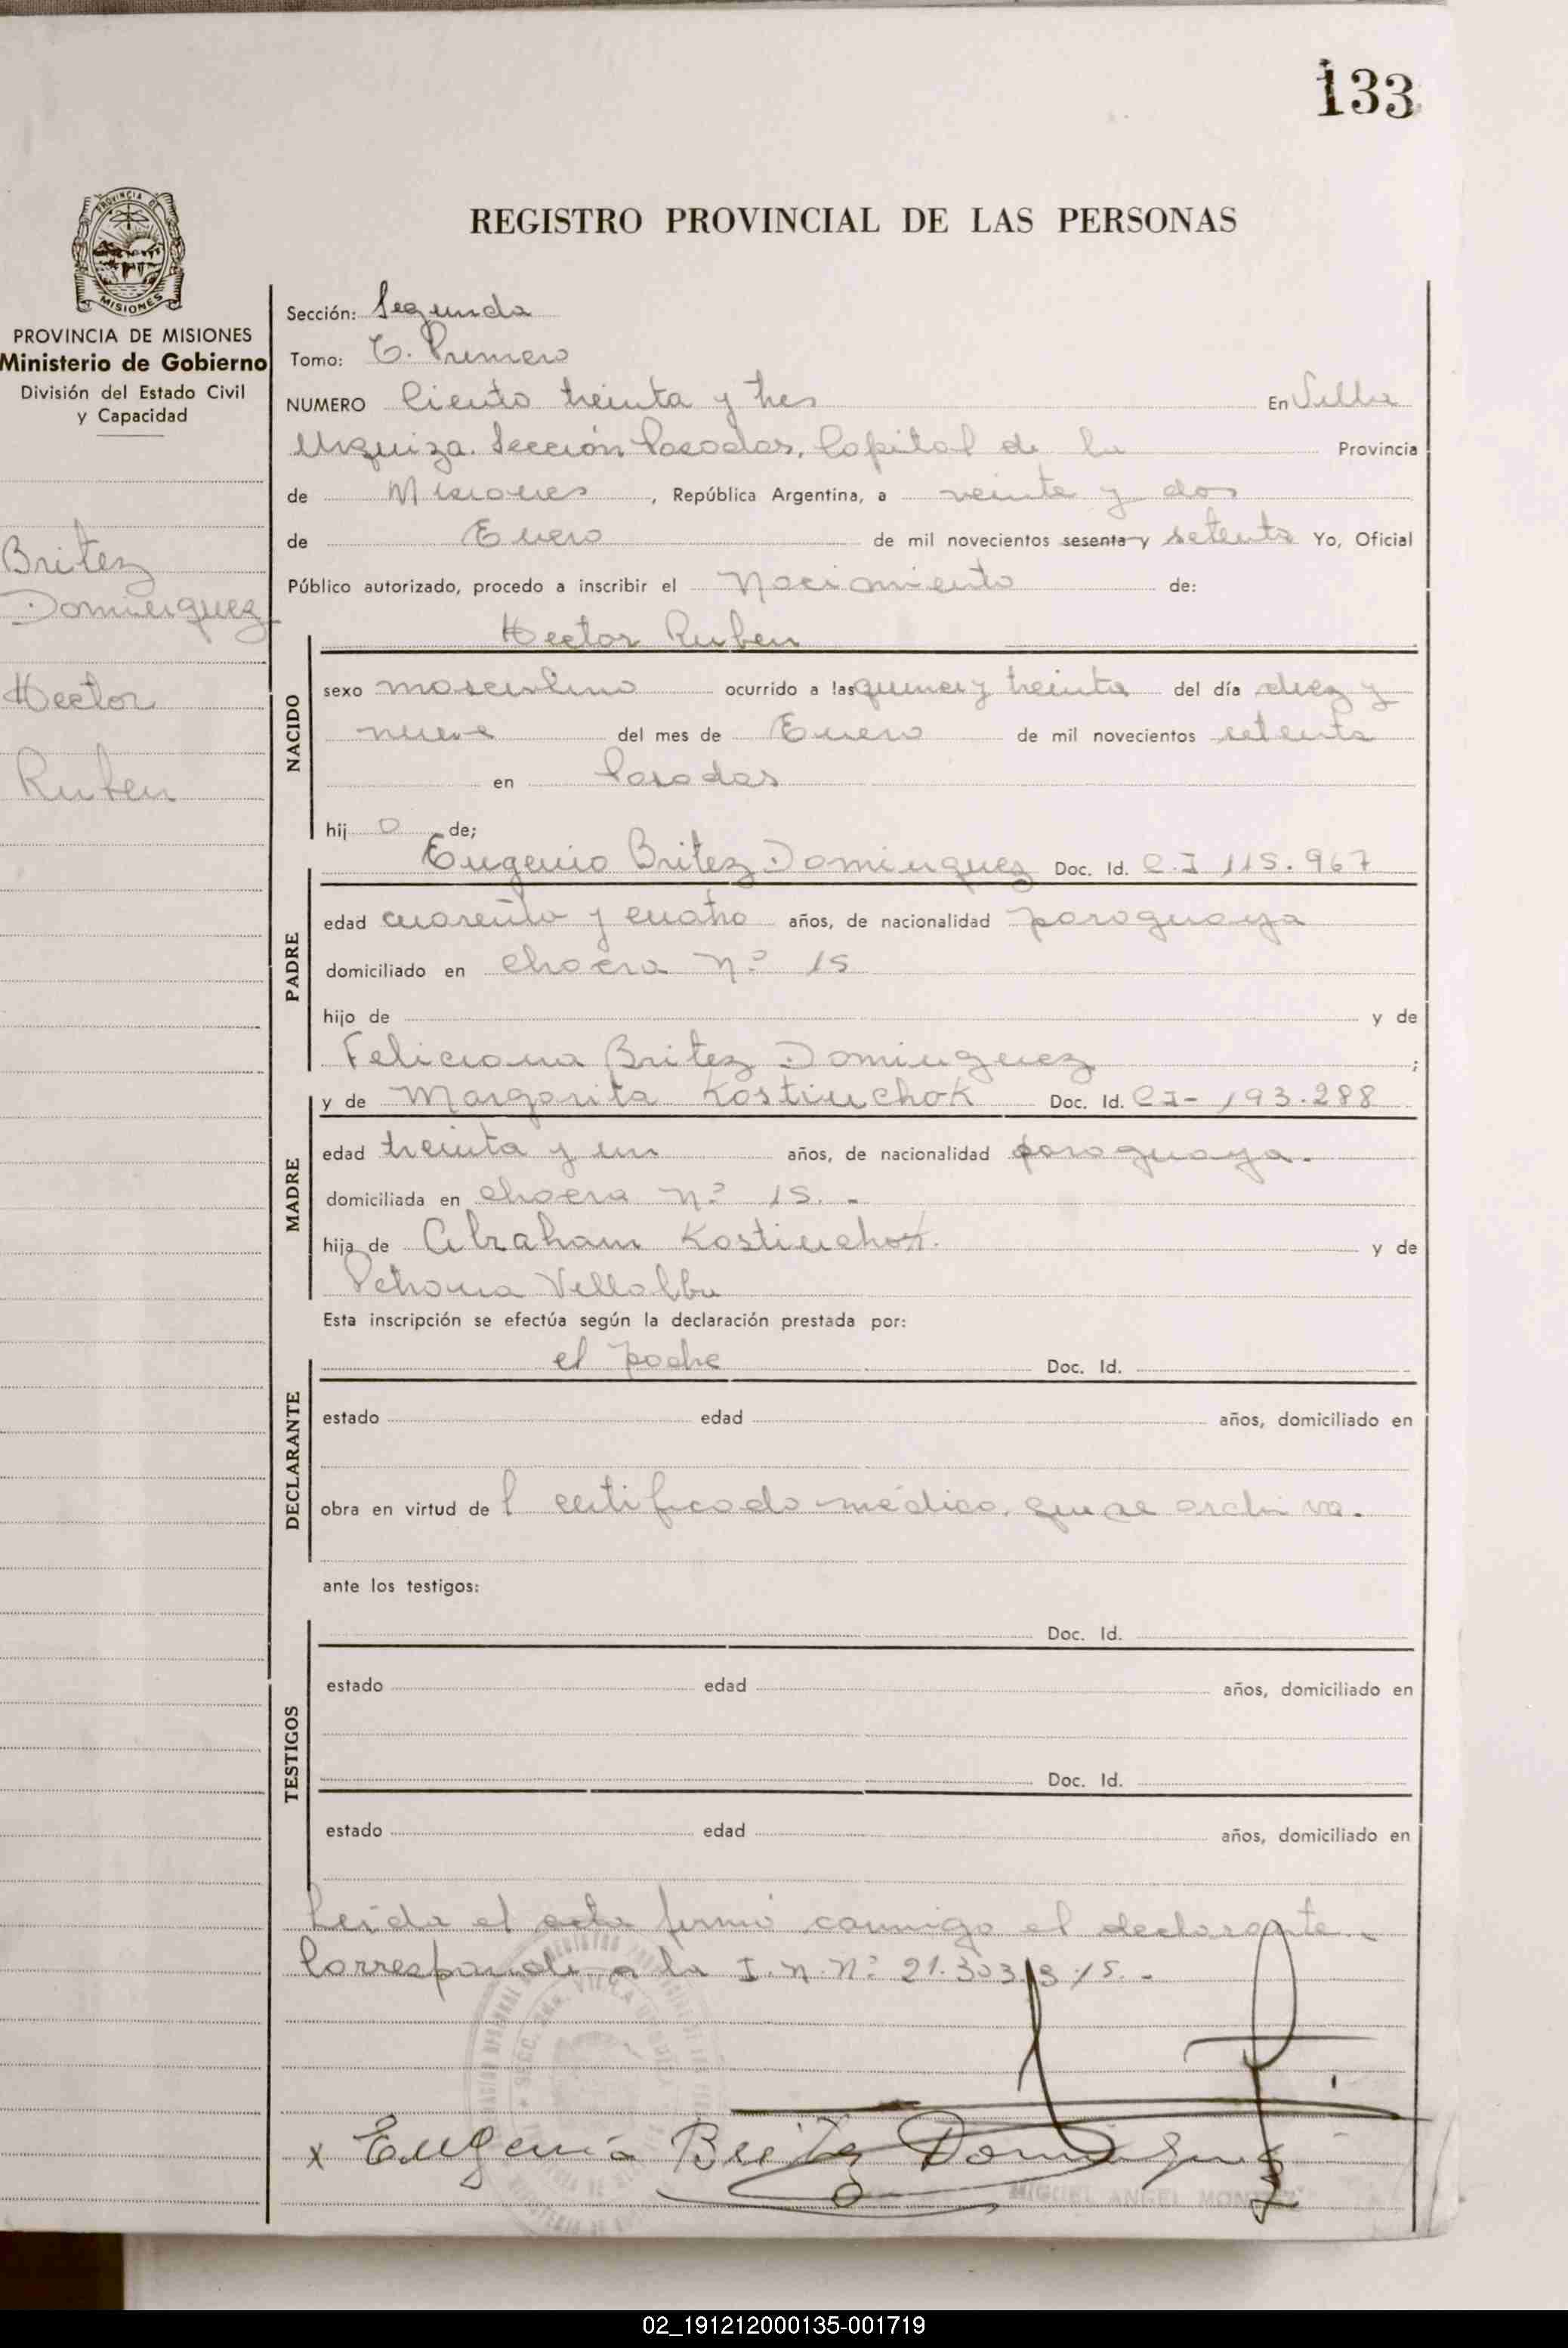 133
REGISTRO PROVINCIAL DE LAS PERSONAS
PROVINCIA DE
MISIONES
PROVINCIA DE MISIONES
Ministerio de Gobierno
División del Estado Civil
y Capacidad
Britez
Dominguez
Hector
Ruben
Sección: Segunda
Tomo: T. Primero
NUMERO Ciento treinta y tres En Villa
Urquiza. Sección Posadas, Capital de la Provincia
de Misiones, República Argentina, a veinte y dos
de Enero de mil novecientos sesenta y setenta Yo, Oficial
Público autorizado, procedo a inscribir el Nacimiento de:
Hector Ruben
NACIDO
sexo masculino ocurrido a las quince y treinta del día diez y
nueve del mes de Enero de mil novecientos setenta
en Posadas
hij o de;
Eugenio Britez Dominguez Doc. Id. C.I 115.967
PADRE
edad cuarenta y cuatro años, de nacionalidad paraguaya
domiciliado en chacra Nº 15
hijo de y de
Feliciana Britez Dominguez ;
y de Margarita Kostiuchok Doc. Id. CI- 193.288
MADRE
edad treinta y un años, de nacionalidad paraguaya.
domiciliada en chacra Nº 15. -
hija de Abraham Kostiuchok. y de
Petrona Villalba
Esta inscripción se efectúa según la declaración prestada por:
el padre Doc. Id.
DECLARANTE
estado edad años, domiciliado en
obra en virtud de l certificado médico, que se archiva.
ante los testigos:
Doc. Id.
TESTIGOS
estado edad años, domiciliado en
Doc. Id.
estado edad años, domiciliado en
Leída el acta firmó conmigo el declarante.
Corresponde a la I.N.Nº 21.303.315. -
x Eugenio Britez Dominguez
MIGUEL ANGEL
02_191212000135-001719